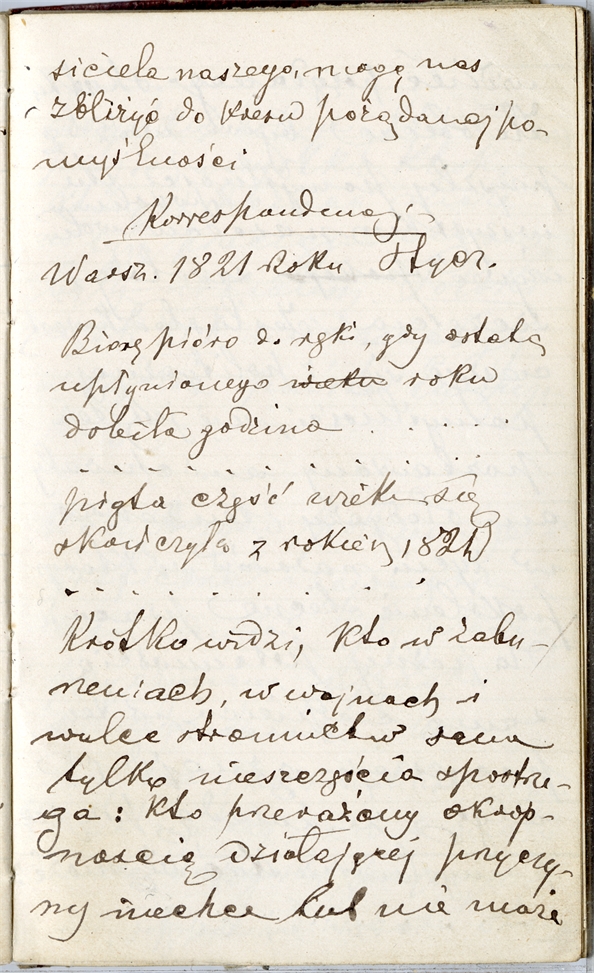 siciela naszego, mogą nas
zbliżyć do kresu pożądanej po-
myślności
Korrespondencj.
Warsz. 1821 Roku Stycz.
Biorę pióro do ręki, gdy ostatą
upłynionego wieku roku
dobiła godzina . . . .
. . . . . . . . .
piąta część wieku się
skończyła z rokiem 1821
. . . . . . . . .
Krótko widzi, kto w zabu-
rzeniach, w wojnach i
walce stronnictw sama
tylko nieszczęścia spostrze-
ga: kto przerażony okrop-
nością działającej przyczy-
ny niechce lub nie może